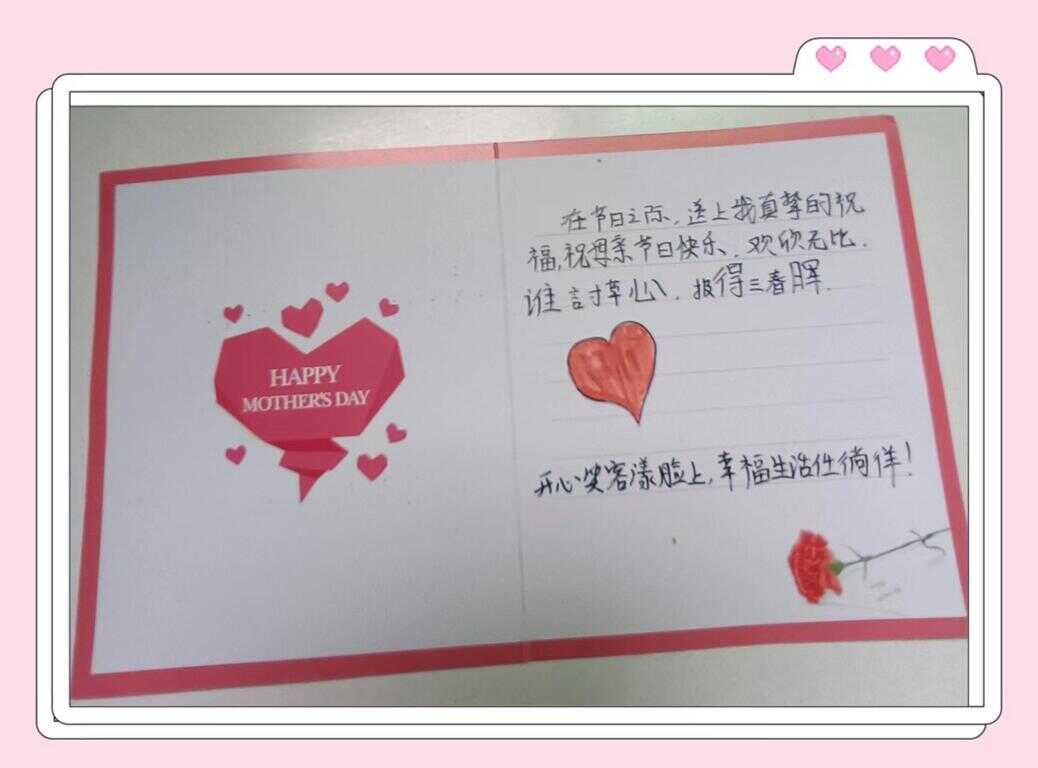 HAPPY
MOTHER'S DAY
在节日之际,送上我真挚的祝
福,祝母亲节日快乐、欢欣无比.
谁言寸草心,报得三春晖.
开心笑容漾脸上,幸福生活任徜徉!